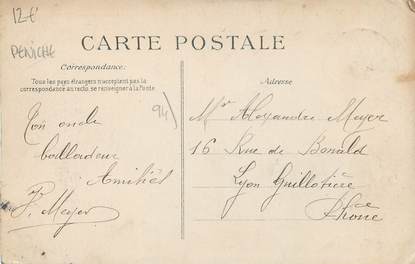 12€
PENICHE
CARTE POSTALE
Correspondance:
Tous les pays étrangers n'acceptent pas la
correspondance au recto. se renseigner à la Poste
Adresse
94
Ton oncle
Amitiés
F. Meyer
Mr Alexandre Meyer
16 Rue de Bonald
Lyon Guillotière
Rhône